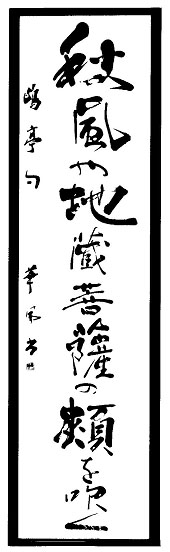 秋風や地蔵菩薩の頬を吹く
亭句 華風書